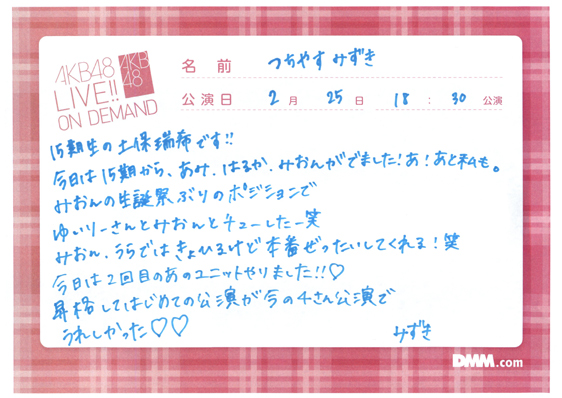 AKB48
LIVE!!
ON DEMAND
AKB
48
名前 つちやす みずき
公演日 2月 25日 18:30公演
15期生の土保瑞希です!!
今日は15期から、あみ、はるか、みおんがでました!あ!あと私も。
みおんの生誕祭ぶりのポジションで
ゆいりーさんとみおんとチューしたー笑
みおん、うらではきょひるけど本番ぜったいしてくれる!笑
今日は2回目のあのユニットやりました!!♡
昇格してはじめての公演が今の4さん公演で
うれしかった♡♡
みずき
DMM.com